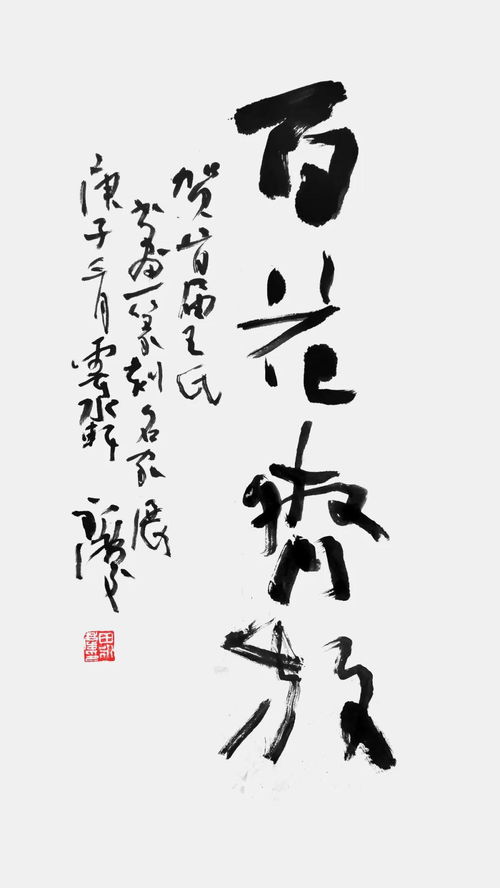 百花齊放
贺首届王氏
书画篆刻名家展
庚子三月雲水轩